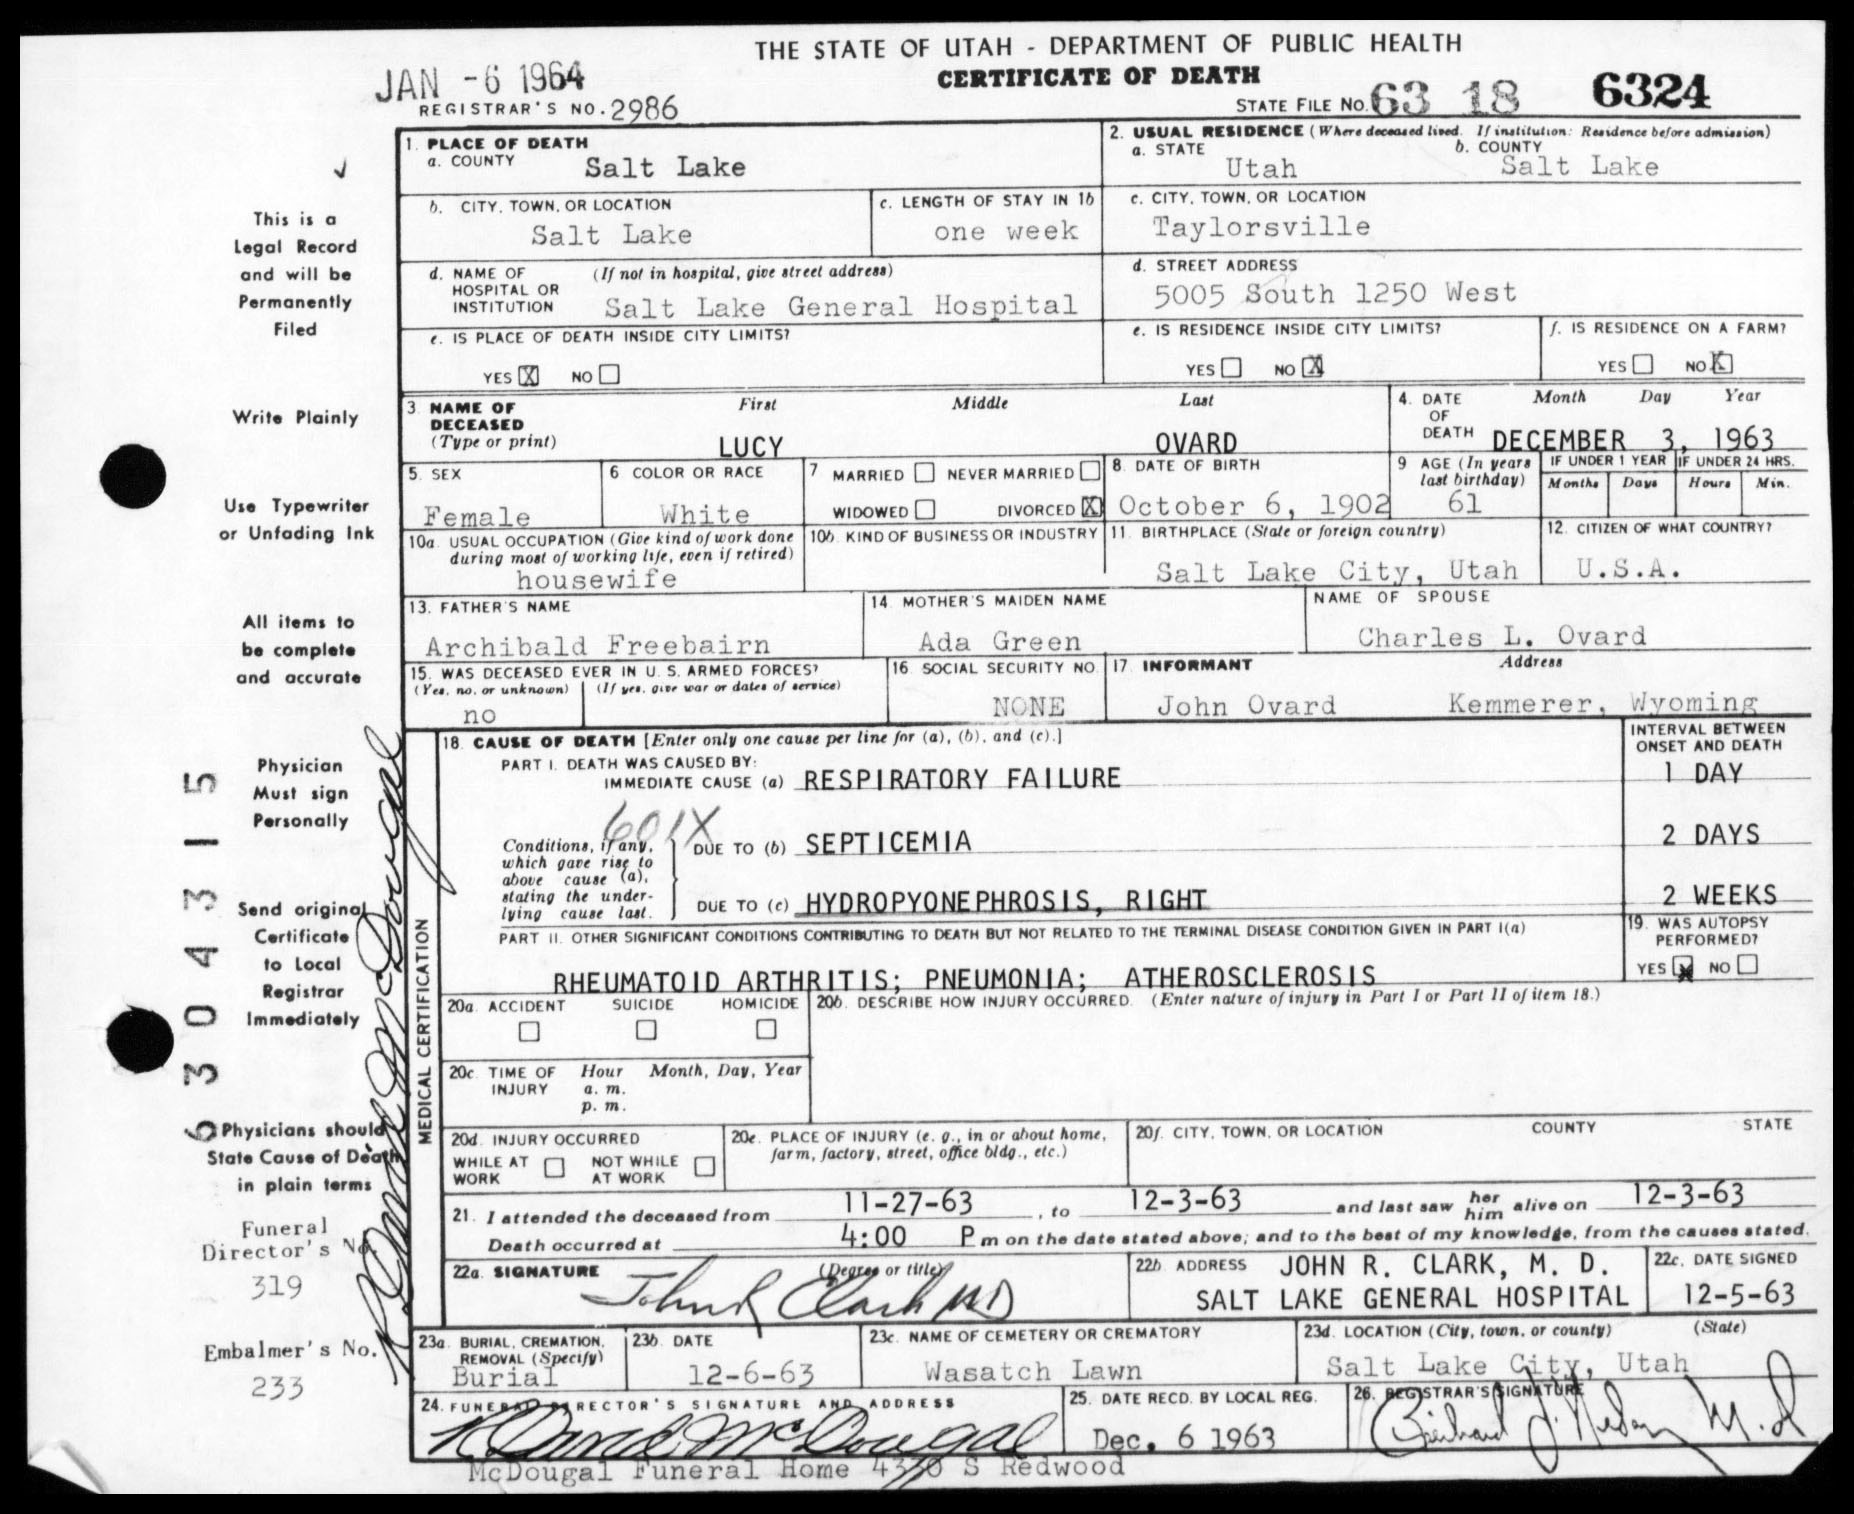 THE STATE OF UTAH - DEPARTMENT OF PUBLIC HEALTH
CERTIFICATE OF DEATH
JAN -6 1964
REGISTRAR'S NO. 2986
STATE FILE NO. 63 18 6324
This is a
Legal Record
and will be
Permanently
Filed
Write Plainly
Use Typewriter
or Unfading Ink
All items to
be complete
and accurate
Physician
Must sign
Personally
Send original
Certificate
to Local
Registrar
Immediately
Physicians should
State Cause of Death
in plain terms
Funeral
Director's No.
319
Embalmer's No.
233
R David McDougal
6304315
1. PLACE OF DEATH
a. COUNTY Salt Lake
2. USUAL RESIDENCE (Where deceased lived. If institution: Residence before admission)
a. STATE Utah b. COUNTY Salt Lake
b. CITY, TOWN, OR LOCATION Salt Lake
c. LENGTH OF STAY IN 1b one week
c. CITY, TOWN, OR LOCATION Taylorsville
d. NAME OF HOSPITAL OR INSTITUTION (If not in hospital, give street address)
Salt Lake General Hospital
d. STREET ADDRESS
5005 South 1250 West
e. IS PLACE OF DEATH INSIDE CITY LIMITS?
YES X NO
e. IS RESIDENCE INSIDE CITY LIMITS?
YES NO X
f. IS RESIDENCE ON A FARM?
YES NO X
3. NAME OF DECEASED (Type or print) First Middle Last
LUCY OVARD
4. DATE OF DEATH Month Day Year
DECEMBER 3, 1963
5. SEX Female
6 COLOR OR RACE White
7 MARRIED NEVER MARRIED
WIDOWED DIVORCED X
8. DATE OF BIRTH October 6, 1902
9 AGE (In years last birthday) 61
IF UNDER 1 YEAR Months Days
IF UNDER 24 HRS. Hours Min.
10a. USUAL OCCUPATION (Give kind of work done during most of working life, even if retired)
housewife
10b. KIND OF BUSINESS OR INDUSTRY
11. BIRTHPLACE (State or foreign country)
Salt Lake City, Utah
12. CITIZEN OF WHAT COUNTRY?
U.S.A.
13. FATHER'S NAME
Archibald Freebairn
14. MOTHER'S MAIDEN NAME
Ada Green
NAME OF SPOUSE
Charles L. Ovard
15. WAS DECEASED EVER IN U. S. ARMED FORCES?
(Yes, no, or unknown) (If yes, give war or dates of service)
no
16. SOCIAL SECURITY NO.
NONE
17. INFORMANT Address
John Ovard Kemmerer, Wyoming
MEDICAL CERTIFICATION
18. CAUSE OF DEATH [Enter only one cause per line for (a), (b), and (c).]
INTERVAL BETWEEN ONSET AND DEATH
PART I. DEATH WAS CAUSED BY:
IMMEDIATE CAUSE (a) RESPIRATORY FAILURE 1 DAY
601X
Conditions, if any, which gave rise to above cause (a), stating the underlying cause last.
DUE TO (b) SEPTICEMIA 2 DAYS
DUE TO (c) HYDROPYONEPHROSIS, RIGHT 2 WEEKS
PART II. OTHER SIGNIFICANT CONDITIONS CONTRIBUTING TO DEATH BUT NOT RELATED TO THE TERMINAL DISEASE CONDITION GIVEN IN PART I(a)
RHEUMATOID ARTHRITIS; PNEUMONIA; ATHEROSCLEROSIS
19. WAS AUTOPSY PERFORMED?
YES X NO
20a. ACCIDENT SUICIDE HOMICIDE
20b. DESCRIBE HOW INJURY OCCURRED. (Enter nature of injury in Part I or Part II of item 18.)
20c. TIME OF INJURY Hour a. m. p. m. Month, Day, Year
20d. INJURY OCCURRED
WHILE AT WORK NOT WHILE AT WORK
20e. PLACE OF INJURY (e. g., in or about home, farm, factory, street, office bldg., etc.)
20f. CITY, TOWN, OR LOCATION COUNTY STATE
21. I attended the deceased from 11-27-63, to 12-3-63 and last saw her him alive on 12-3-63
Death occurred at 4:00 P m on the date stated above; and to the best of my knowledge, from the causes stated.
22a. SIGNATURE (Degree or title)
John R Clark MD
22b. ADDRESS JOHN R. CLARK, M. D.
SALT LAKE GENERAL HOSPITAL
22c. DATE SIGNED
12-5-63
23a. BURIAL, CREMATION, REMOVAL (Specify)
Burial
23b. DATE
12-6-63
23c. NAME OF CEMETERY OR CREMATORY
Wasatch Lawn
23d. LOCATION (City, town, or county) (State)
Salt Lake City, Utah
24. FUNERAL DIRECTOR'S SIGNATURE AND ADDRESS
R David McDougal
McDougal Funeral Home 4330 S Redwood
25. DATE RECD. BY LOCAL REG.
Dec. 6 1963
26. REGISTRAR'S SIGNATURE
M.d